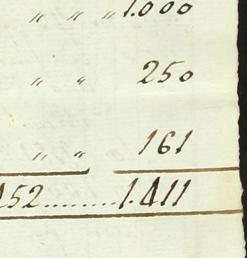 〃 〃 〃 1.000
〃 〃 250
〃 〃 161
152.........1.411